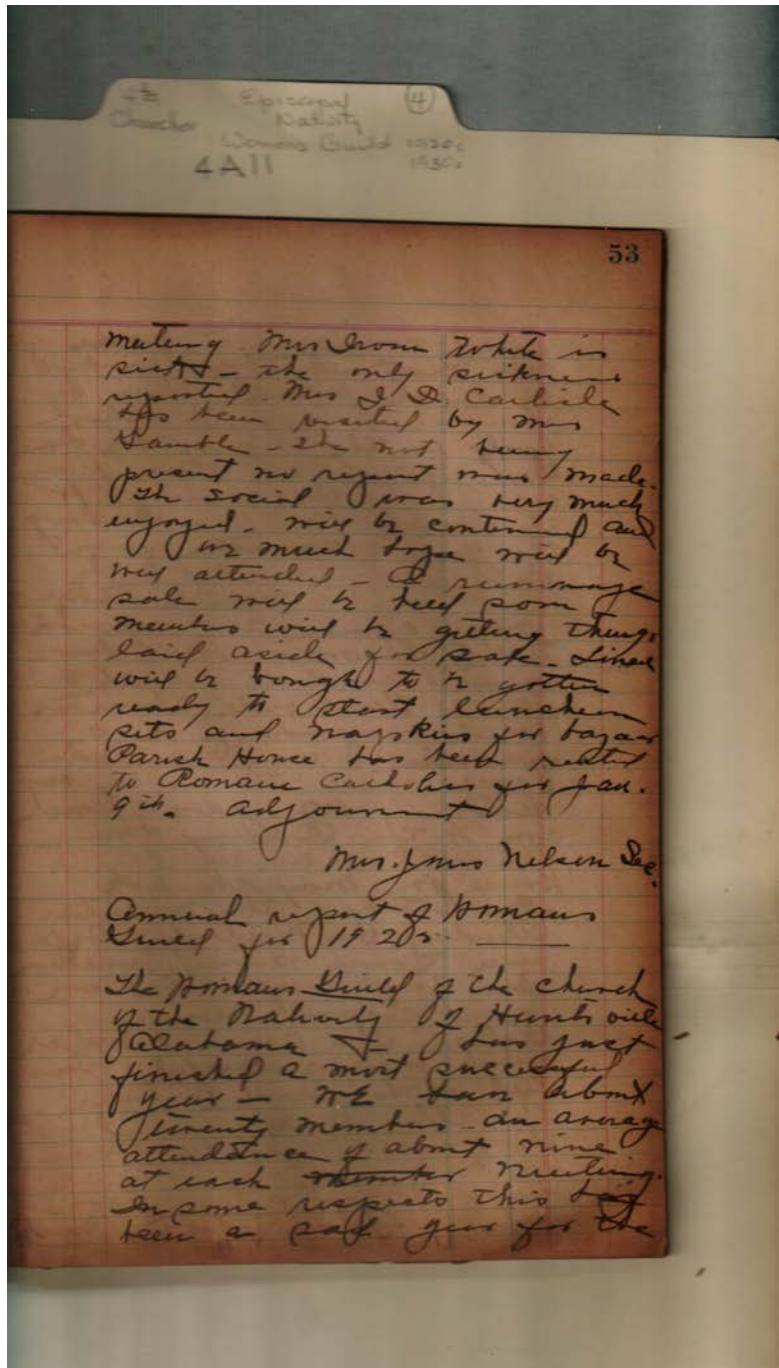 4th Episcopal ④
Churches Nativity
Womens Guild 1920s
4A11 1930s
53
meeting. Mrs White is
sick – the only sickness
reported. Mrs J. D. Carlisle
has been visited by Mrs
Gamble – She not being
present no report was made.
The Social was very much
enjoyed. will be continued and
we much hope will be
well attended – A rummage
sale will be held soon
members will be getting things
laid aside for sale – Linen
will be bought to be gotten
ready to start luncheon
sets and napkins for bazaar
Parish House has been rented
to Romane Catholics for Jan.
9th. Adjournment
Mrs. Nelson Sec.
Annual report of Womans
Guild for 192
The Womans Guild of the Church
of the Nativity of Huntsville
Alabama has just
finished a most successful
year – We have about
twenty members – an average
attendance of about nine
at each member meeting.
In some respects this has
been a sad year for the